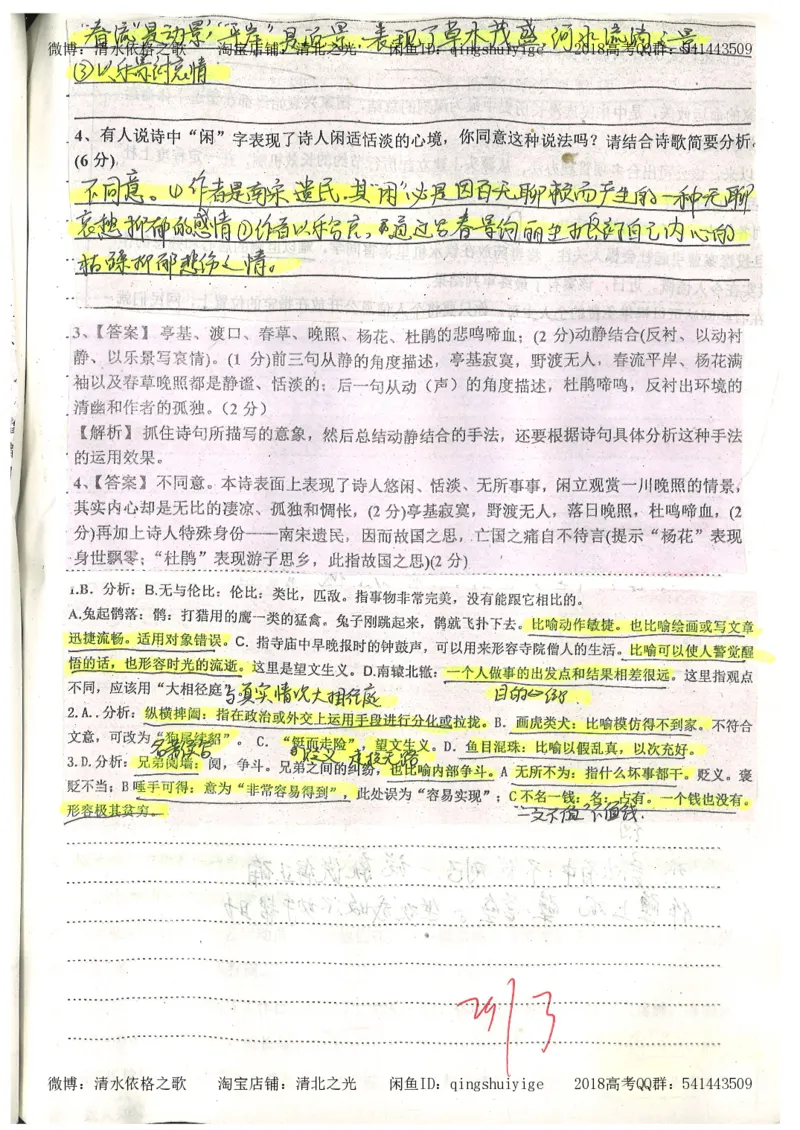 微博：清水依格之歌 淘宝店铺：清北之光 闲鱼ID：qingshuiyige 2018高考QQ群：541443509
"春流"是动景，"平岸"是静景，表现了草木茂盛，河水流淌之景
③以乐景衬哀情
4、有人说诗中“闲”字表现了诗人闲适恬淡的心境，你同意这种说法吗？请结合诗歌简要分析。
(6分)
不同意。①作者是南宋遗民，其"闲"必是因百无聊赖而产生的一种无聊
哀愁抑郁的感情②作者以乐写哀，通过写春景绚丽生机衬自己内心的
枯躁抑郁悲伤之情。
3、【答案】亭基、渡口、春草、晚照、杨花、杜鹃的悲鸣啼血；(2 分)动静结合(反衬、以动衬
静、以乐景写哀情)。(1 分)前三句从静的角度描述，亭基寂寞，野渡无人，春流平岸、杨花满
袖以及春草晚照都是静谧、恬淡的；后一句从动（声）的角度描述，杜鹃啼鸣，反衬出环境的
清幽和作者的孤独。（2 分）
【解析】抓住诗句所描写的意象，然后总结动静结合的手法，还要根据诗句具体分析这种手法
的运用效果。
4、【答案】不同意。本诗表面上表现了诗人悠闲、恬淡、无所事事，闲立观赏一川晚照的情景，
其实内心却是无比的凄凉、孤独和惆怅，(2 分)亭基寂寞，野渡无人，落日晚照，杜鸣啼血，(2
分)再加上诗人特殊身份——南宋遗民，因而故国之思，亡国之痛自不待言(提示“杨花”表现
身世飘零；“杜鹃”表现游子思乡，此指故国之思)(2 分)
1.B．分析：B.无与伦比：伦比：类比，匹敌。指事物非常完美，没有能跟它相比的。
A.兔起鹘落：鹘：打猎用的鹰一类的猛禽。兔子刚跳起来，鹘就飞扑下去。比喻动作敏捷。也比喻绘画或写文章
迅捷流畅。适用对象错误。C．指寺庙中早晚报时的钟鼓声，可以用来形容寺院僧人的生活。比喻可以使人警觉醒
悟的话，也形容时光的流逝。这里是望文生义。D.南辕北辙：一个人做事的出发点和结果相差很远。这里指观点
不同，应该用“大相径庭 与真实情况大相径庭 目的
2.A．.分析：纵横捭阖：指在政治或外交上运用手段进行分化或拉拢。B．画虎类犬：比喻模仿得不到家。不符合
文意，可改为“狗尾续貂”。 C．“铤而走险”，望文生义。D．鱼目混珠：比喻以假乱真，以次充好。
3.D.分析：兄弟阋墙：阋，争斗。兄弟之间的纠纷，也比喻内部争斗。A 无所不为：指什么坏事都干。贬义。褒
贬不当；B 唾手可得：意为“非常容易得到”，此处误为“容易实现”；C 不名一钱：名：占有。一个钱也没有。
形容极其贫穷。 "一文不值"不值钱.
29/3
微博：清水依格之歌 淘宝店铺：清北之光 闲鱼ID：qingshuiyige 2018高考QQ群：541443509